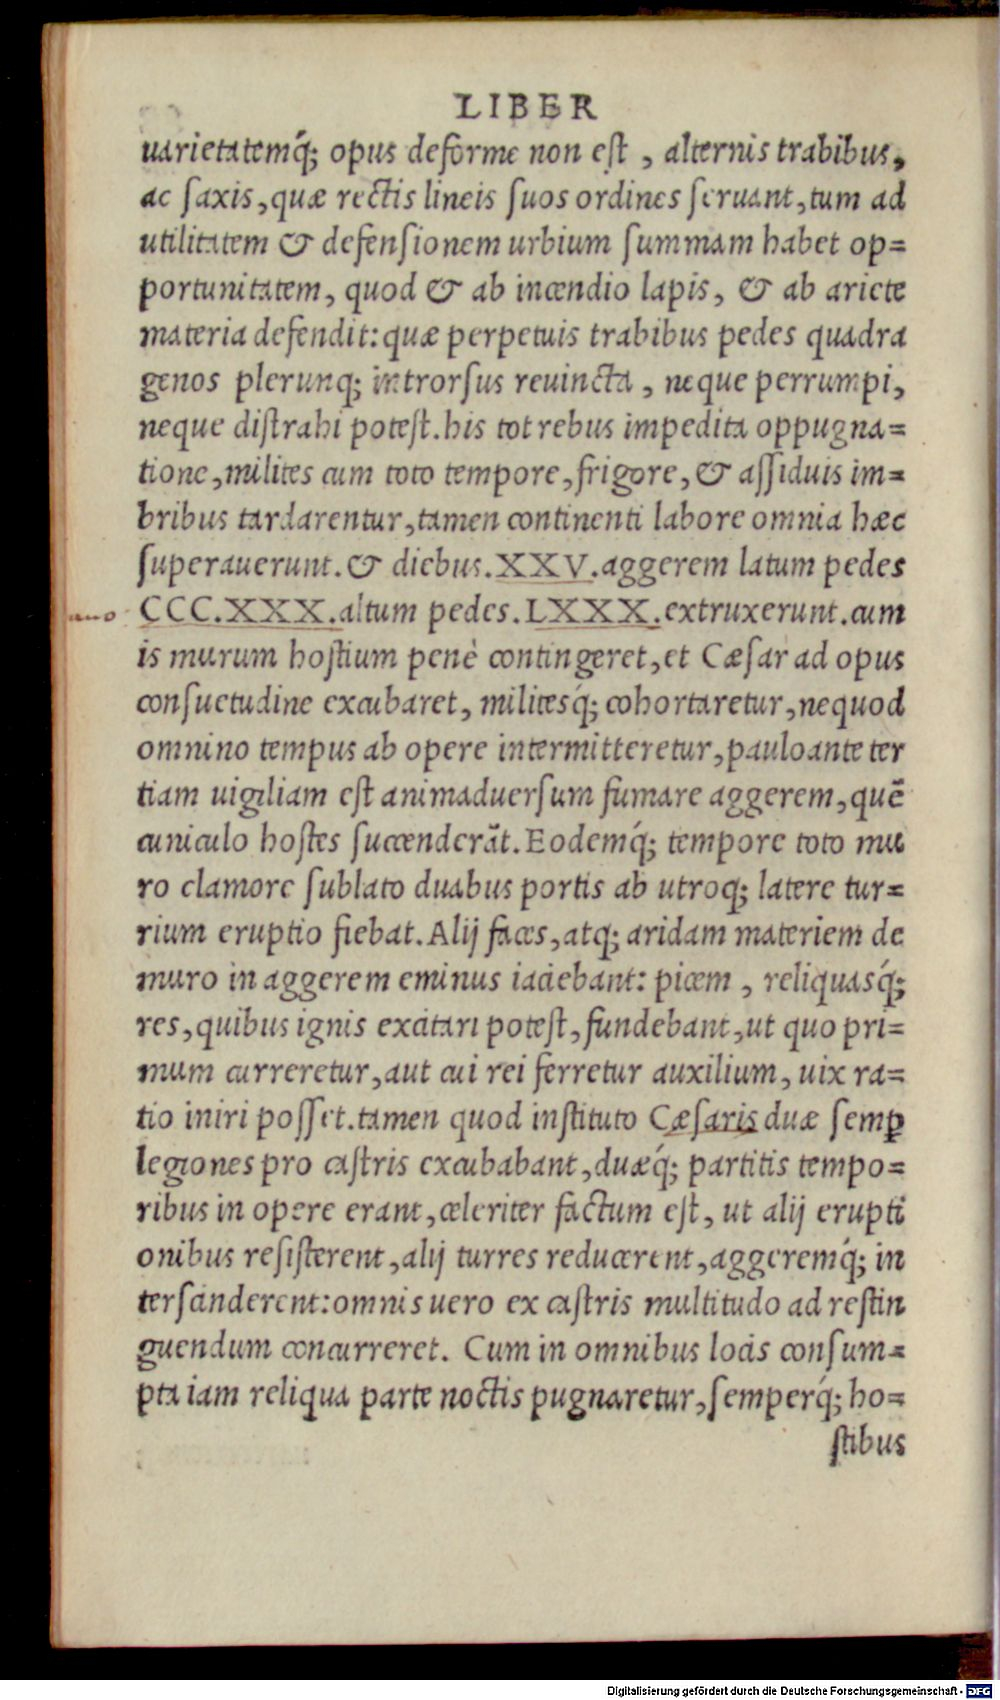 LIBER
uarietatemq́; opus deforme non eſt , alternis trabibus,
ac ſaxis,quæ rectis lineis ſuos ordines ſeruant,tum ad
utilitatem & defenſionem urbium ſummam habet op=
portunitatem, quod & ab incendio lapis, & ab ariete
materia defendit: quæ perpetuis trabibus pedes quadra
genos plerunq; introrſus reuincta , neque perrumpi,
neque diſtrahi poteſt.his tot rebus impedita oppugna=
tione,milites cum toto tempore,frigore,& aſſiduis im=
bribus tardarentur,tamen continenti labore omnia hæc
ſuperauerunt.& diebus.XXV.aggerem latum pedes
CCC.XXX.altum pedes.LXXX.extruxerunt.cum
is murum hoſtium penè contingeret,et Cæſar ad opus
conſuetudine excubaret, militesq́; cohortaretur,nequod
omnino tempus ab opere intermitteretur,pauloante ter
tiam uigiliam eſt animaduerſum fumare aggerem,quē
cuniculo hoſtes ſuccenderāt.Eodemq́; tempore toto mu
ro clamore ſublato duabus portis ab utroq; latere tur=
rium eruptio fiebat.Alij faces,atq; aridam materiem de
muro in aggerem eminus iaciebant: picem , reliquasq́;
res,quibus ignis excitari poteſt,fundebant,ut quo pri=
mum curreretur,aut cui rei ferretur auxilium, uix ra=
tio iniri poſſet.tamen quod inſtituto Cæſaris duæ ſemꝑ
legiones pro caſtris excubabant,duæq́; partitis tempo=
ribus in opere erant,celeriter factum eſt, ut alij erupti
onibus reſiſterent,alij turres reducerent,aggeremq́; in
terſcinderent:omnis uero ex caſtris multitudo ad reſtin
guendum concurreret. Cum in omnibus locis conſum=
pta iam reliqua parte noctis pugnaretur,ſemperq́; ho=
ſtibus
Digitalisierung gefördert durch die Deutsche Forschungsgemeinschaft - DFG